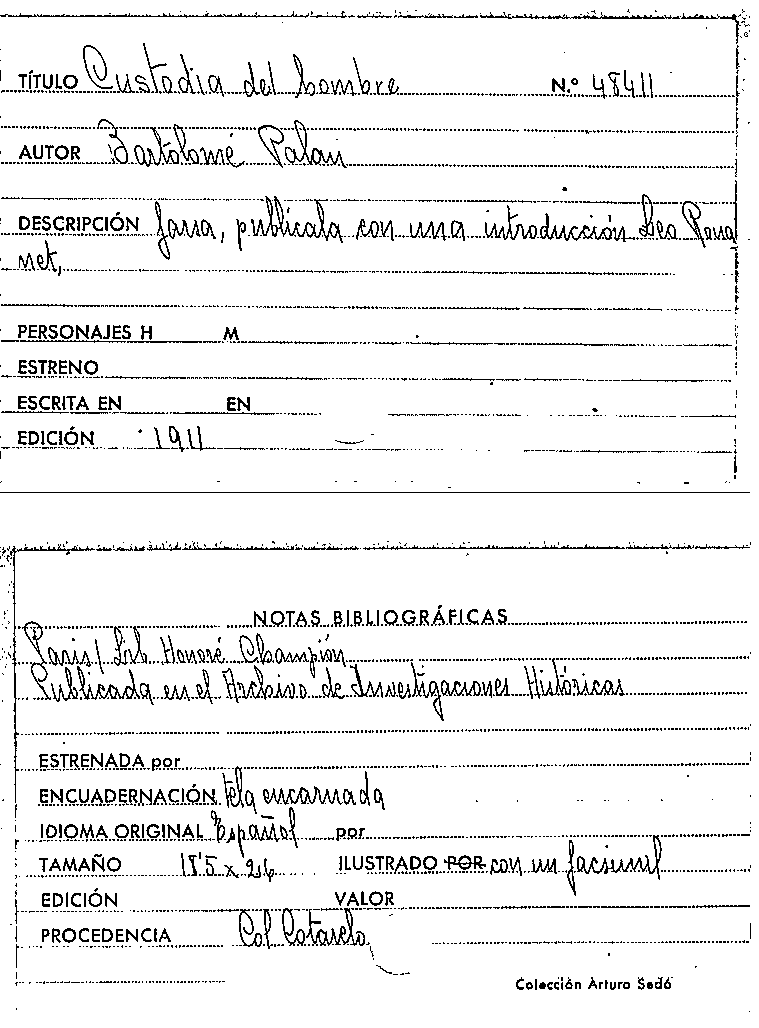 TÍTULO Custodia del hombre N.º 48411
AUTOR Bartolomé Palau
DESCRIPCIÓN farsa, publícala con una introducción Leo Roua
net,
PERSONAJES H M
ESTRENO
ESCRITA EN EN
EDICIÓN 1911
NOTAS BIBLIOGRÁFICAS
Paris / Lib Honoré Champión
Publicada en el Archivo de Investigaciones Históricas
ESTRENADA por
ENCUADERNACIÓN tela encarnada
IDIOMA ORIGINAL Español por
TAMAÑO 18'5 x 26 ILUSTRADO POR con un facsimil
EDICIÓN VALOR
PROCEDENCIA Col Cotarelo
Colección Arturo Sedó